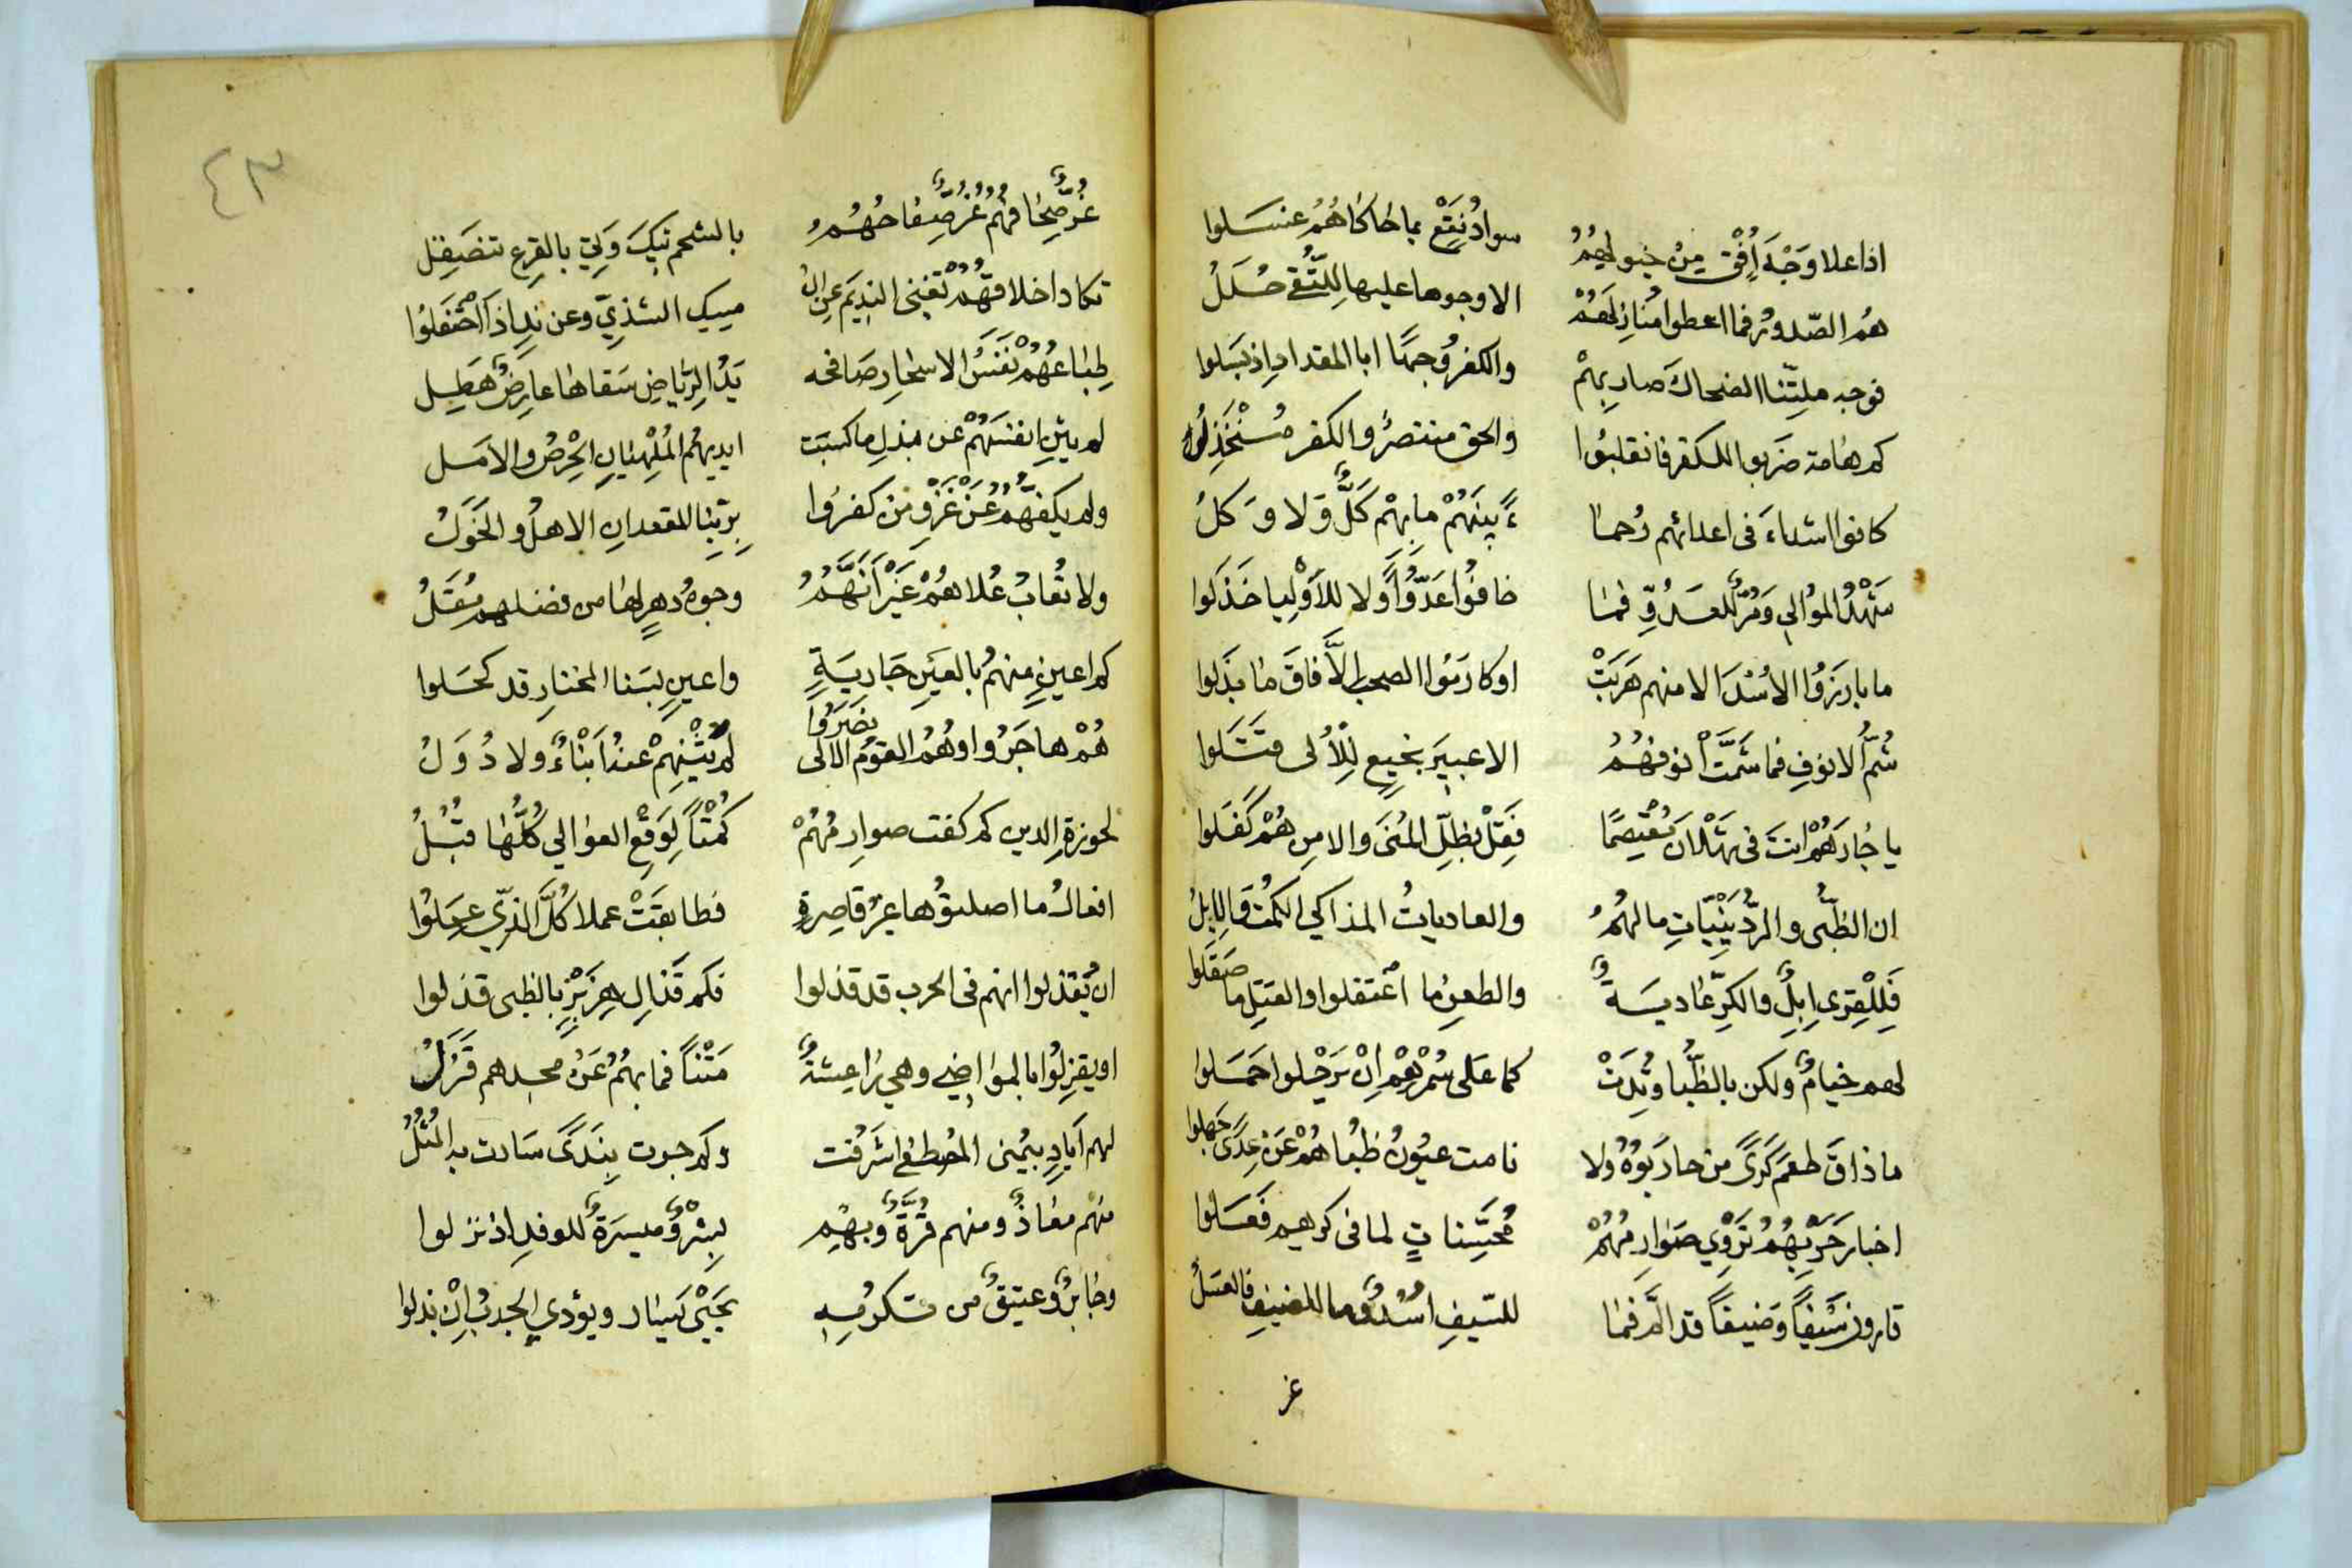 اذا علا وَجْهَ اُفْقٍ مِنْ خيولهِمُ سوادُ نَقْعٍ بما حاكاهُمُ غسلوا
هُمُ الصّدورُ فما اعطوا مناز لَهُمْ الا وجوها عليها لِلتُّقى حُلَلُ
فوجه ملتنا الضحاك صارِمِهِمْ والكفرُ وجهًا ابا المقدادِ اذ بَسَلوا
كم هامة ضَرَبوا للكفر فانقلبُوا والحق منتصرٌ والكفر مُنْخَذِلُ
كانوا اشداءَ فى اعدائهم رُحما ءً بينَهُمْ ما بِهِمْ كَلٌّ وَلا وَكلُ
شَهْدُ المُوالي وَمُرٌّ للعَدُوِّ فما خافُوا عَدُوًّا وَلا للأَوْلِيا خَذَلوا
ما بارَزُوا الاُسْدَ الا منهم هَرَبَتْ او كارَمُوا الصحب الاَّ فاقَ ما بَذَلوا
شُمُّ الانوفِ فما شَمَّتْ أُنوفُهُمُ الا عبيرَ نجيعٍ لِلْأُلى قتَلوا
يا جارَهُمْ انتَ فى ثَهْلانَ مُعْتصِمًا فَقِلْ بظلِّ المُنَى والامنِ هُمْ كَفَلوا
ان الظُّبى والرُّدَيْنِيّاتِ مالهُمُ والعادياتُ المذاكي الكُمْتُ وَالاِبِلُ
فَلِلْقِرى اِبِلٌ والكرِّ عادِيَةٌ والطعنِ ما اعْتَقلوا والقتلِ ما صَقَلوا
لهم خيامٌ ولكن بالظُّبا وُتِدَتْ كما عَلى سُمْرِهِمْ اِنْ يَرْحَلوا حَمَلوا
ما ذاقَ طعمَ كَرًى من حارَبوُهُ ولا نامت عيُونُ ظُباهُمْ عَنْ عِدًى جَهِلوا
اخبارَ حَرْبِهُمُ تَرْوِي صَوارِمُهُمْ مُحَسَّناتٍ لما فى كرهم فَعَلوا
قارون سَيْفًا وَضيفًا قد الَمَّ فما للسّيفِ اُسْدٌ وما للضيفِ فالعسَلُ
غر
٤٣
غُرٌّ صِحا فهُمُ غُرٌّ صِفاحُهُمُ بالشحم تيكَ وَتي بالقرعِ تنصَقِلُ
تكاد اخلاقُهُمْ تُغْني النديمَ عن الْ مسك الشذيِّ وعن نِدٍّ اذا احْتَفَلوُا
طِباعُهُمْ نَفَسُ الاسحارِ صَافحه يَدُ الرِّياضِ سَقاها عارِضٌ هَطِلُ
لم يثنِ انفسَهُمْ عن بذلِ ما كسبَت ايديهُمُ المُلْهِيانِ الحِرْصُ والامَلُ
ولم يكُفَّهُمُ عَنْ غَزْوِ مَن كفَرُوا بِرَبِّنا المقعدانِ الاهلُ والخَوَلُ
ولا تُعابُ عُلاهُمْ غَيْرَ اَنَّهُمُ وجوهُ دهرٍ لها من فضلهم مُقَلُ
كم اعينٍ منهمُ بالعَينِ جَارِيَةٍ واعينٍ بسَنا المختارِ قد كَحَلوا
هُمْ هاجَرُوا وهُمُ القومُ الالى نَصَرُوا لم يَثْنِهِمْ عنهُ اَبْناءٌ ولا دُوَلُ
لحوزةِ الدين كم كفت صوارِمُهُمْ كُمْتًا لِوَقْعِ العوالي كُلُّها قُبُلُ
افعالُ ما اصلتوُها غيرُ قاصِرةٍ فطابَقَتْ عملا كُلَّ الذيِّ عمِلوُا
ان يُقذلوا انهم فى الحرب قد قذلوا فكم قَذالِ هِزَبْرٍ بالظبى قذلوا
او يقزِلُوا بالمواضي وهي راعِشَةٌ مَتْنًا فما بهُمُ عَنْ مجدهم قَزَلُ
لهم اَيادٍ بيُمنى المصطفى اشرَقت وكم جرت بِنَدًى سَارت به المثُلُ
منهم معاذٌ ومنهم قُرَّةٌ وبهم بِشْرٌ وميسرَةٌ للوفدِ اذ نزلوا
وجابرٌ وعتيقٌ من تكرمه يَحيْى يَسار ويؤدي الجدبُ اِنْ بذلوا